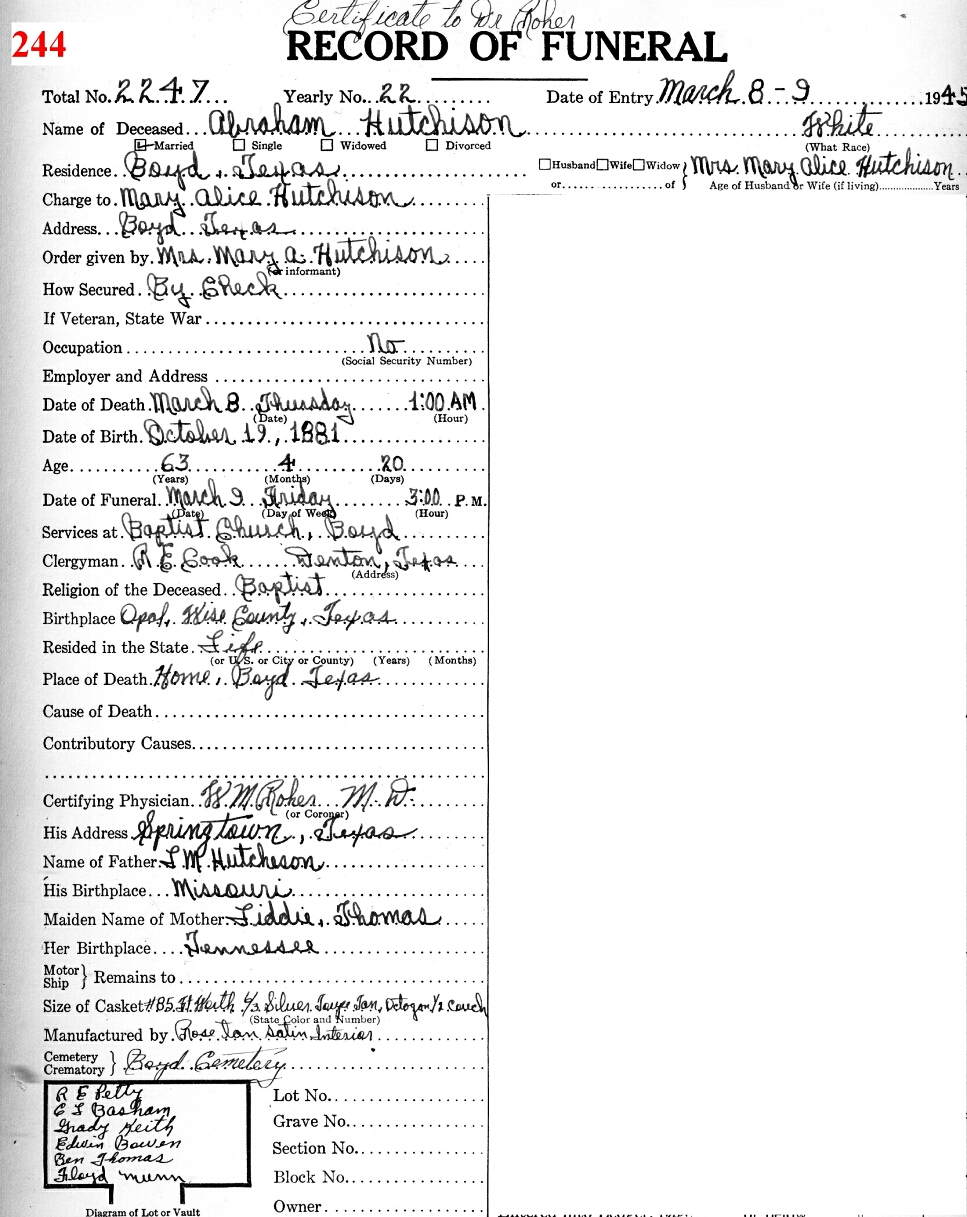 Certificate to Dr Roher
244
RECORD OF FUNERAL
Total No. 2247 Yearly No. 22 Date of Entry March 8-9 1945
Name of Deceased Abraham Hutchison White
Married Single Widowed Divorced (What Race)
Residence Boyd, Texas Husband Wife Widow } Mrs. Mary Alice Hutchison
or of Age of Husband or Wife (if living) Years
Charge to Mary Alice Hutchison
Address Boyd Texas
Order given by Mrs. Mary A. Hutchison
(or informant)
How Secured By Check
If Veteran, State War
Occupation No
(Social Security Number)
Employer and Address
Date of Death March 8 Thursday 1:00 AM
(Date) (Hour)
Date of Birth October 19, 1881
Age 63 4 20
(Years) (Months) (Days)
Date of Funeral March 9 Friday 3:00 P.M.
(Date) (Day of Week) (Hour)
Services at Baptist Church, Boyd
Clergyman R. E. Cook Denton, Texas
(Address)
Religion of the Deceased Baptist
Birthplace Opal, Wise County, Texas
Resided in the State Life
(or U.S. or City or County) (Years) (Months)
Place of Death Home, Boyd Texas
Cause of Death
Contributory Causes
Certifying Physician W M Roher M.D.
(or Coroner)
His Address Springtown, Texas
Name of Father L M Hutcheson
His Birthplace Missouri
Maiden Name of Mother Liddie, Thomas
Her Birthplace Tennessee
Motor Ship } Remains to
Size of Casket #85 Ft. Worth 6/3 Silver Tan, Octogon 1/2 Couch
(State Color and Number)
Manufactured by Rose Tan Satin Interior
Cemetery Crematory } Boyd Cemetery
R E Petty
C L Basham
Grady Keith
Edwin Bowen
Ben Thomas
Floyd Munn
Lot No.
Grave No.
Section No.
Block No.
Owner
Diagram of Lot or Vault